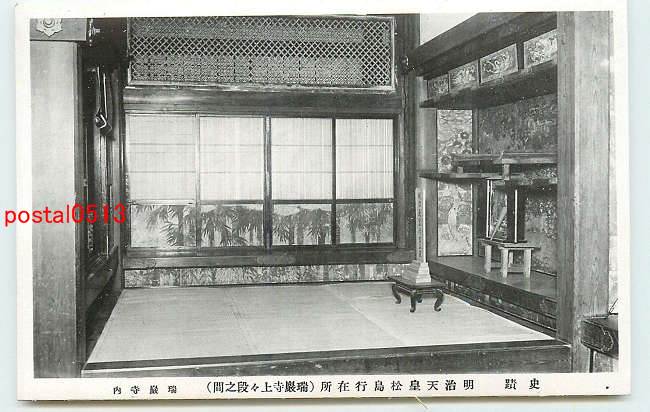 postal0513
史蹟 明治天皇松島行在所(瑞巖寺上々段之間) 瑞巖寺内